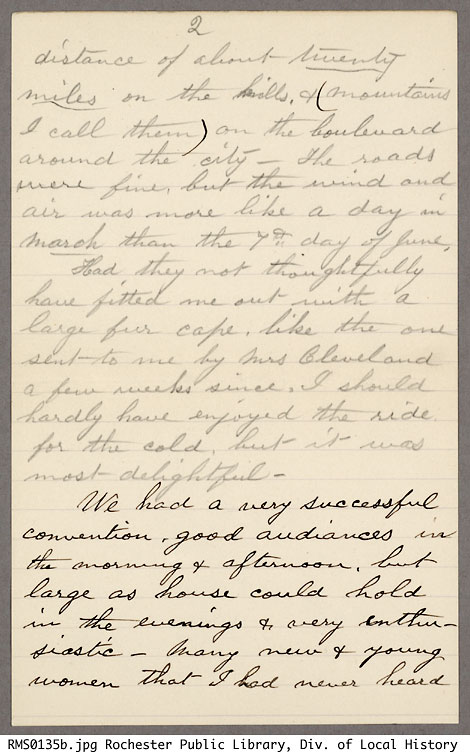 2
distance of about twenty
miles on the hills, & (mountains
I call them) on the boulevard
around the city – The roads
were fine, but the wind and
air was more like a day in
March than the 7th day of June,
Had they not thoughtfully
have fitted me out with a
large fur cape, like the one
sent to me by Mrs Cleveland
a few weeks since, I should
hardly have enjoyed the ride
for the cold, but it was
most delightful –
We had a very successful
convention, good audiances in
the morning & afternoon, but
large as house could hold
in the evenings & very enthu-
siastic – Many new & young
women that I had never heard
RMS0135b.jpg Rochester Public Library, Div. of Local History